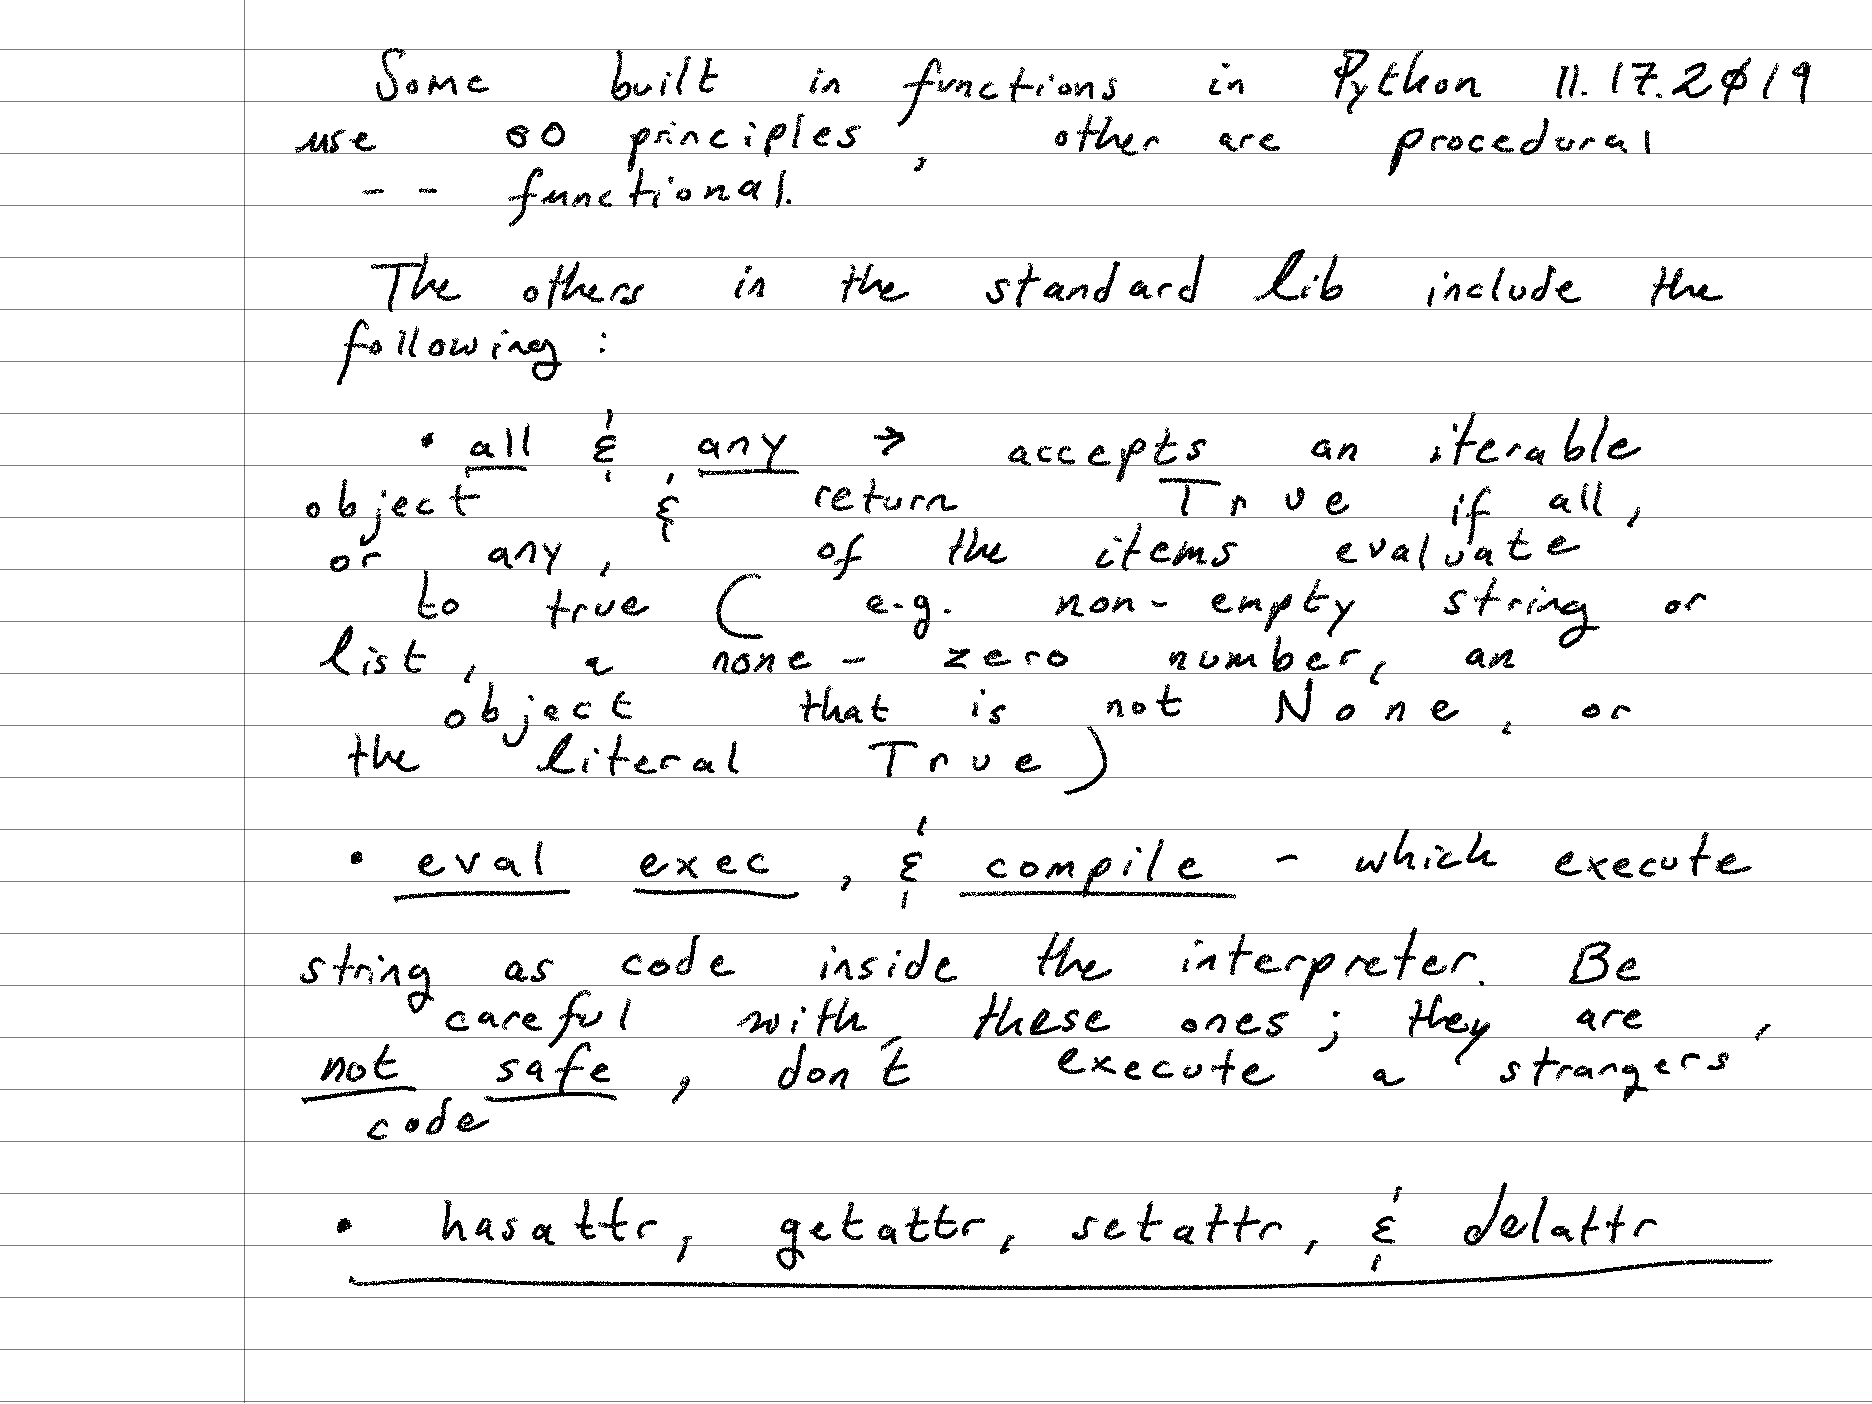 Some built in functions in Python 11.17.2019
use OO principles, other are procedural
-- functional.
The others in the standard lib include the
following:
• all & any → accepts an iterable
object & return True if all,
or any, of the items evaluate
to true ( e.g. non-empty string or
list, a none-zero number, an
object that is not None, or
the literal True)
• eval exec, & compile - which execute
string as code inside the interpreter. Be
careful with these ones; they are
not safe, don't execute a strangers'
code
• hasattr, getattr, setattr, & delattr